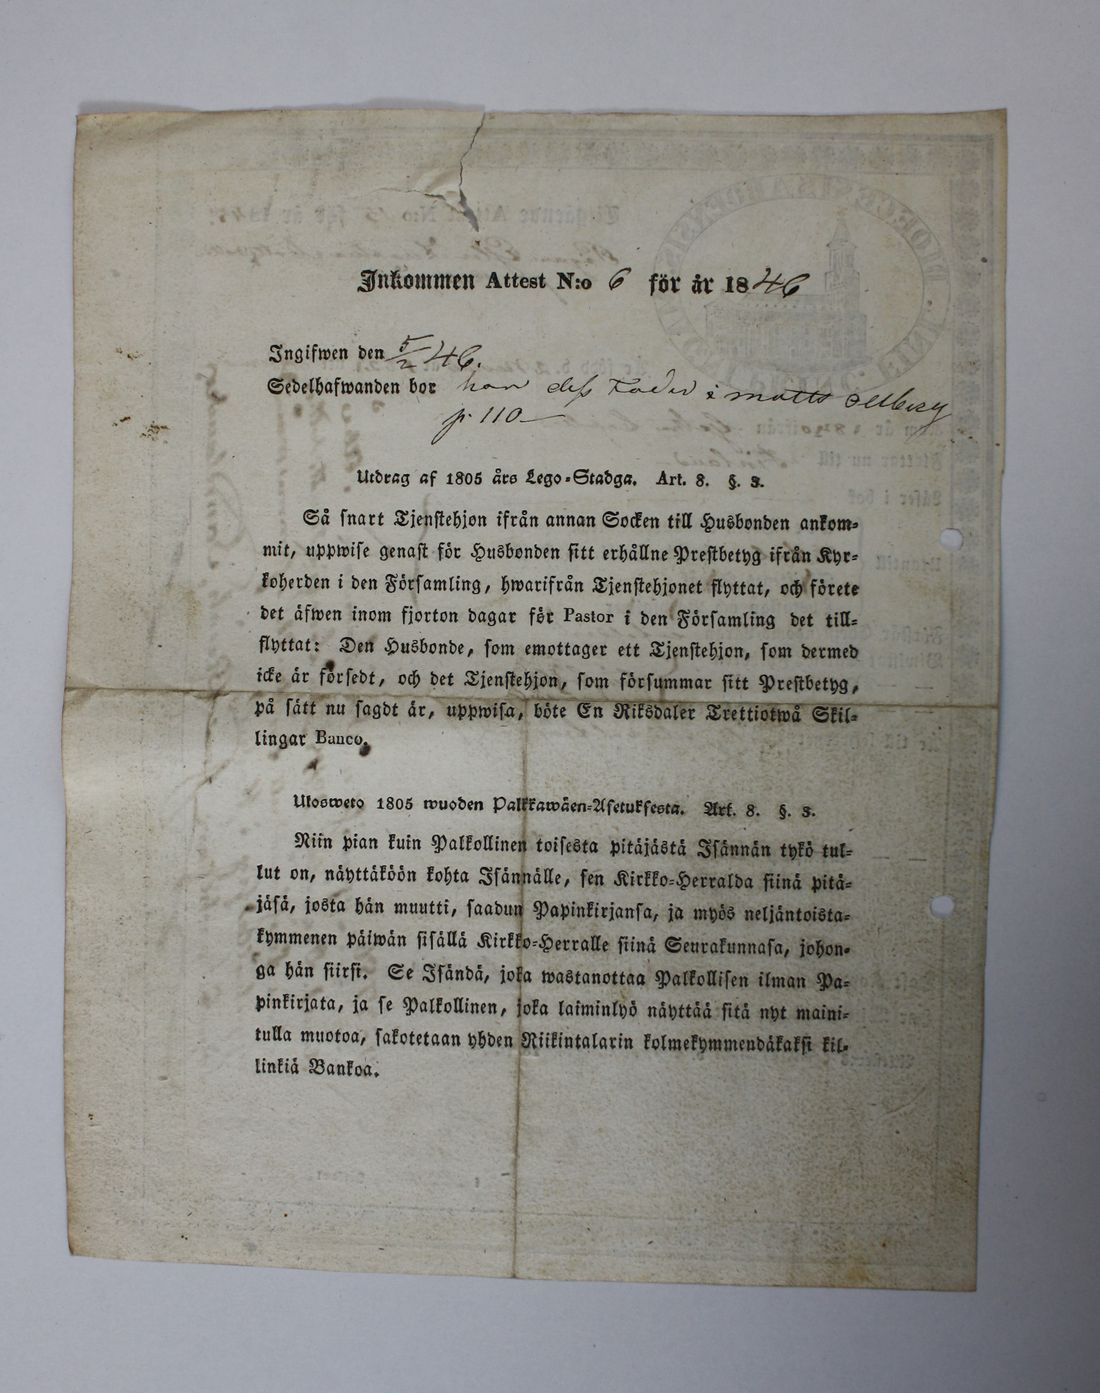 Inkommen Attest N:o 6 för år 1846
Ingifwen den 5/2 46.
Sedelhafwanden bor hos dess Fader i matts
p. 110
Utdrag af 1805 års Lego-Stadga. Art. 8. §. 3.
Så snart Tjenstehjon ifrån annan Socken till Husbonden ankom-
mit, uppwise genast för Husbonden sitt erhållne Prestbetyg ifrån Kyr-
koherden i den Församling, hwarifrån Tjenstehjonet flyttat, och förete
det äfwen inom fjorton dagar för Pastor i den Församling det till-
flyttat: Den Husbonde, som emottager ett Tjenstehjon, som dermed
icke är försedt, och det Tjenstehjon, som försummar sitt Prestbetyg,
på sätt nu sagdt är, uppwisa, böte En Riksdaler Trettiotwå Skil-
lingar Banco.
Ulosweto 1805 wuoden Palkkawäen-Asetuksesta. Art. 8. §. 3.
Niin pian kuin Palkollinen toisesta pitäjästä Isännän tykö tul-
lut on, näyttäköön kohta Isännälle, sen Kirkko-Herralda siinä pitä-
jäsä, josta hän muutti, saadun Papinkirjansa, ja myös neljäntoista-
kymmenen päiwän sisällä Kirkko-Herralle siinä Seurakunnasa, johon-
ga hän siirsi. Se Isändä, joka wastanottaa Palkollisen ilman Pa-
pinkirjata, ja se Palkollinen, joka laiminlyö näyttää sitä nyt maini-
tulla muotoa, sakotetaan yhden Riikintalarin kolmekymmendäkaksi kil-
linkiä Bankoa.